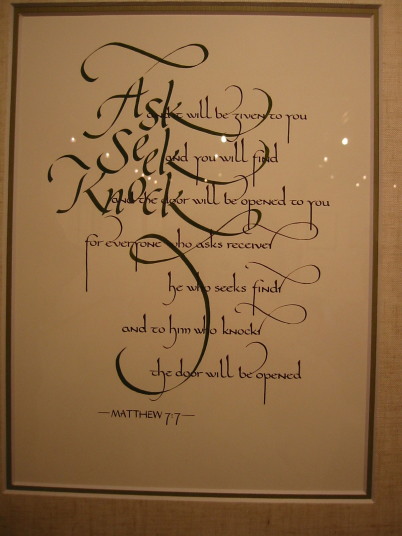 Ask and it will be given to you
Seek and you will find
Knock and the door will be opened to you
for everyone who asks receives
he who seeks finds
and to him who knocks
the door will be opened
—MATTHEW 7:7—